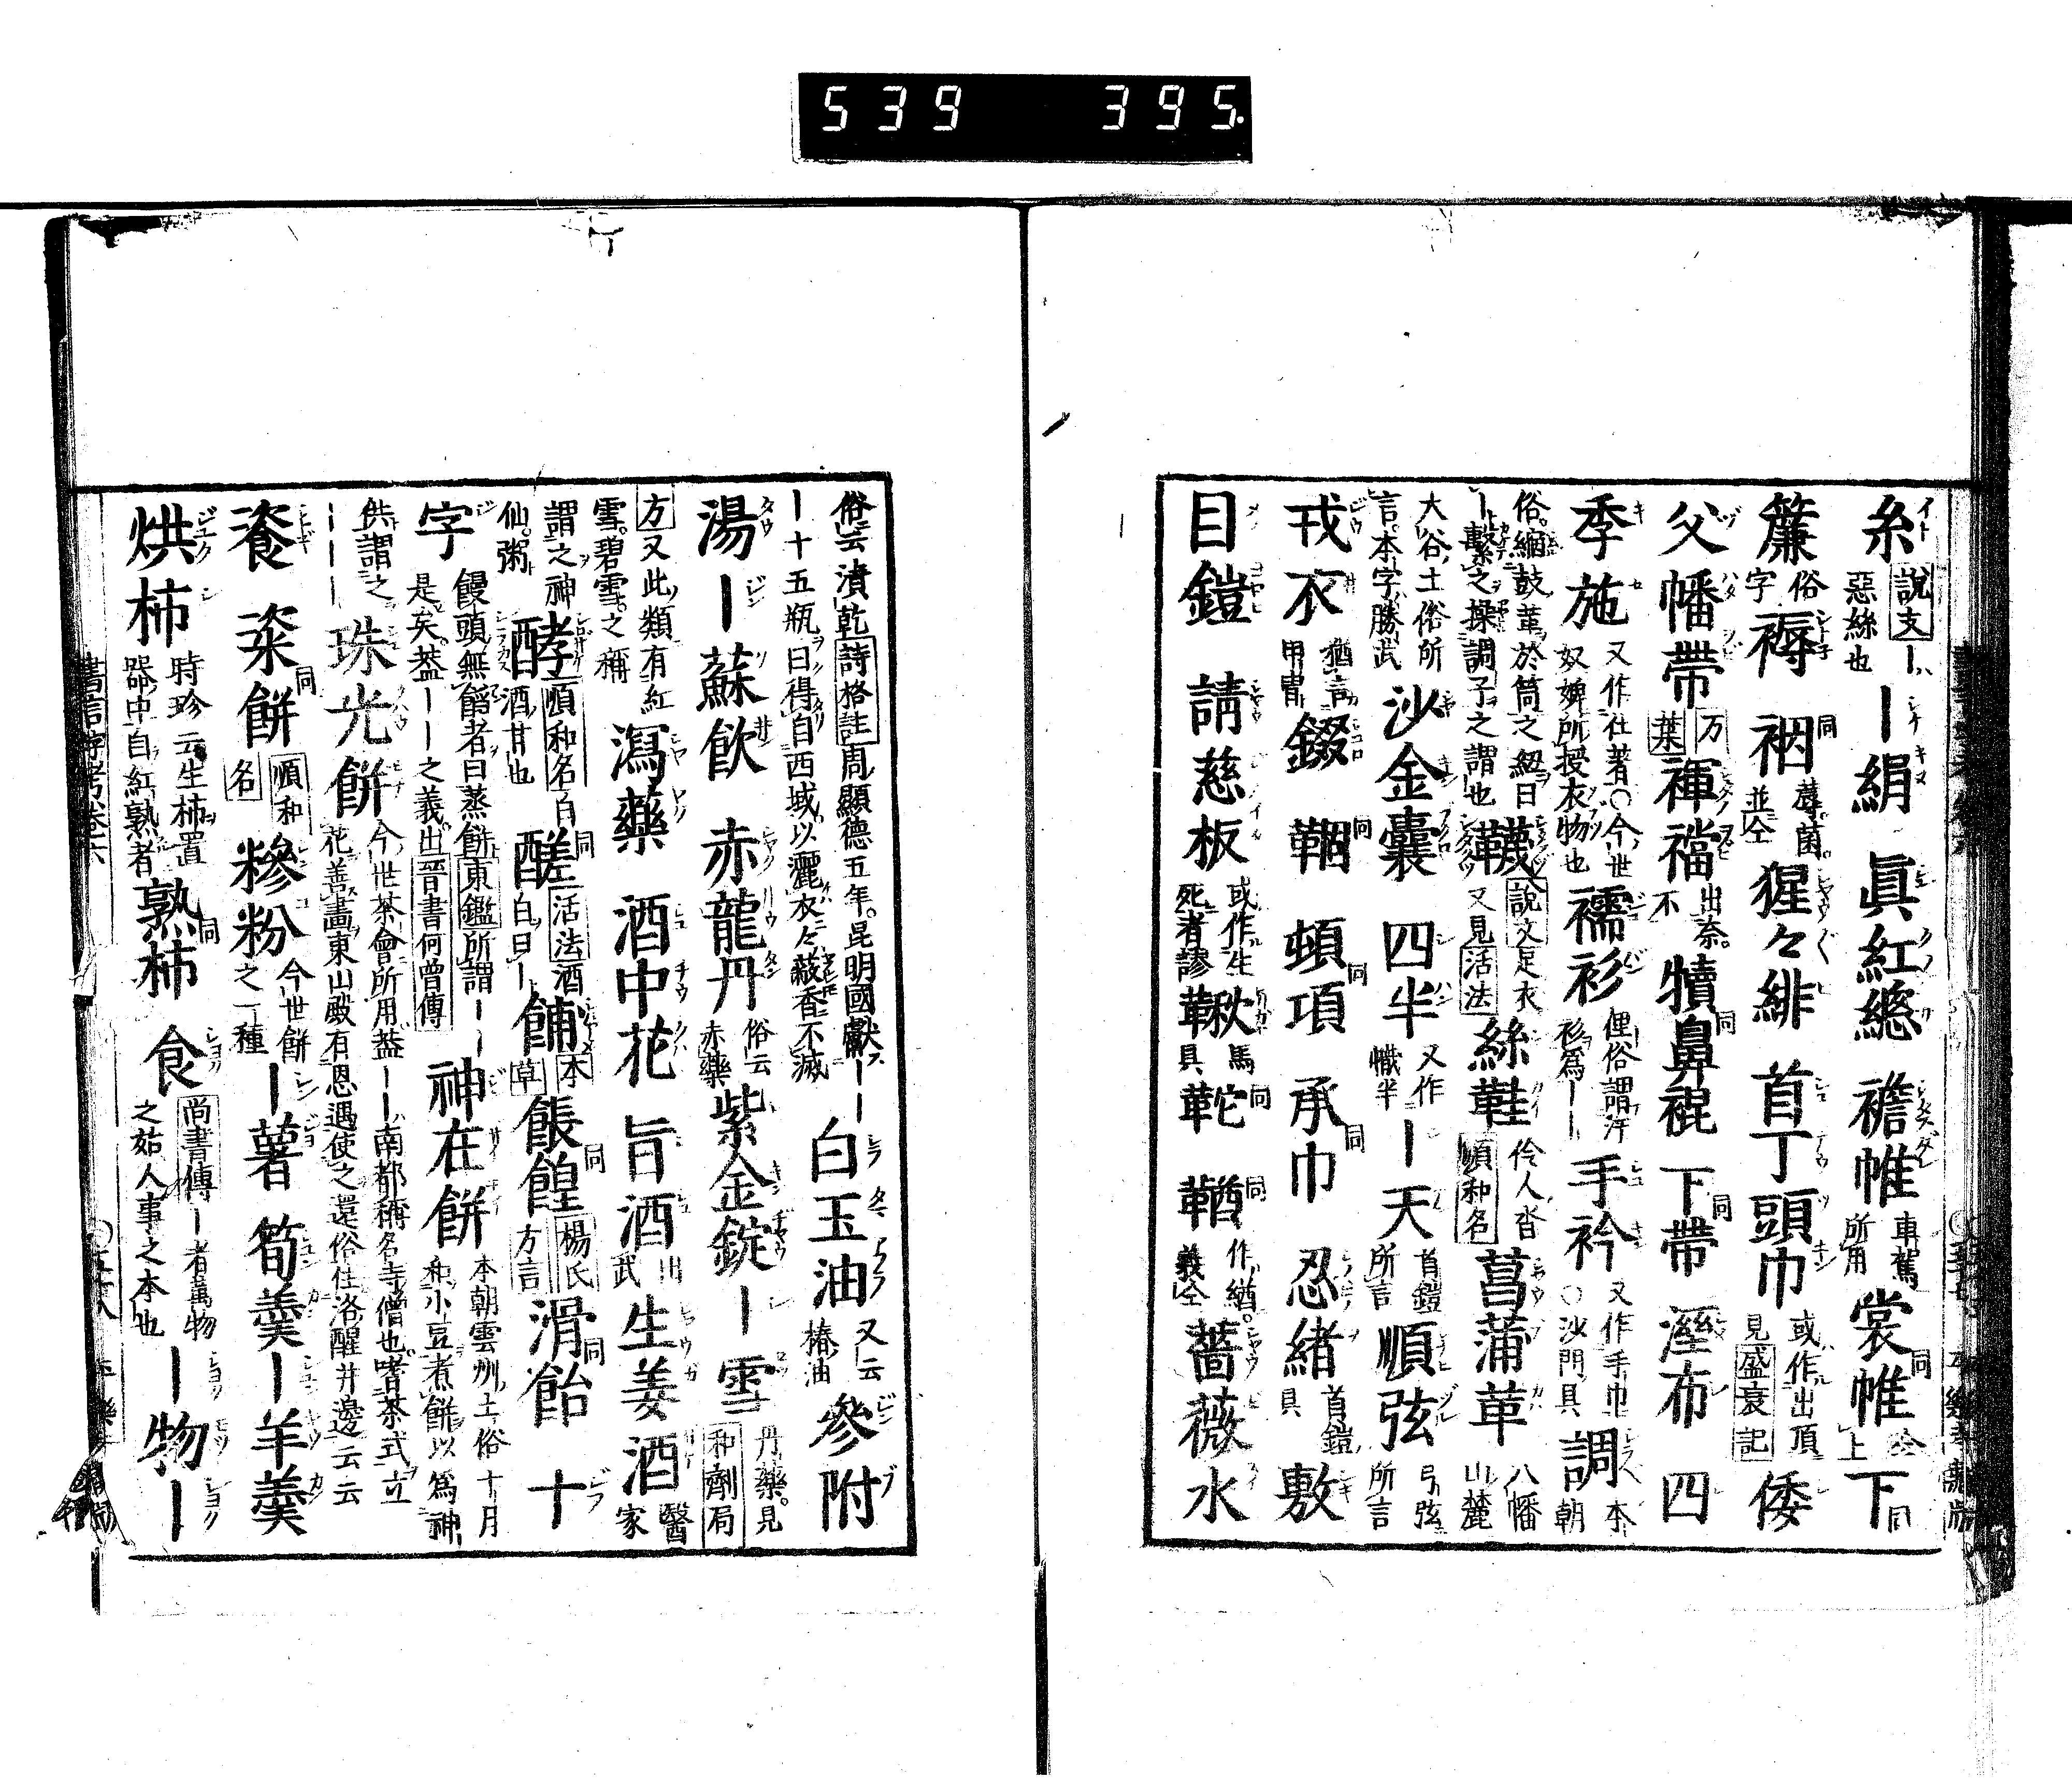 539 395
糸 説文ー惡絲也 ー絹 眞紅總 襜帷 車駕所用 裳帷 同 仝上 下 同
簾 俗字 褥 裀 同 蓐。菌。並仝 猩々緋 首丁頭巾 或作出頂 見盛衰記 倭
父 幡帶 万葉 褌襠 出奈。不 犢鼻裩 同 下帶 同 溼布 四
季施 又作仕著○今世奴婢所授衣物也 襦衫 俚俗謂汗衫為ーー 手衿 又作手巾○沙門具 調 本朝
俗。縮鼓革於筒之紐曰ー繫之操調子之謂也 韈 説文足衣 又見活法 絲鞋 伶人沓 順和名 菖蒲革 八幡山麓
大谷土俗所言。本字勝武 沙金囊 四半 又作幟半 ー天 首鎧所言 順弦 弓弦所言
戎衣 猶言甲冑 錣 鞇 同 頓項 同 承巾 同 忍緒 首鎧具 敷
目鎧 請慈板 或作生死者謬 鞦 馬具 鞁 同 鞧 同 作緧。義仝 薔薇水
俗云漬乾 詩格註 周顯德五年。昆明國獻ーー十五瓶曰得自西域。以灑衣々蔽香不滅 白玉油 又云椿油 參附
湯 ー蘇飲 赤龍丹 俗云赤藥 紫金錠 ー雪 丹藥。見和劑局
方 又此類有紅雪。碧雪之稱 瀉藥 酒中花 旨酒 出武 生姜酒 醫家
謂之神仙。粥 酵 順和名 白酒甘也 醝 同 活法酒白曰ー 餔 本草 餦餭 同 楊氏方言 滑飴 同 十
字 饅頭無餡者曰蒸餅東鑑所謂ーー是矣。蓋ーー之義出晉書何曾傳 神在餅 本朝雲州土俗十月和小豆煮餅以爲神
供謂之ーー 珠光餅 今世茶會所用蓋ーー南都稱名寺僧也。嗜茶式立花善畫東山殿有恩遇使之還俗住洛醒井邊云云
餈 粢餅 同 順和名 糝粉 今世餅之一種 ー薯 筍羹 ー羊羹
烘柿 時珍云生柿置器中自紅熟者 熟柿 同 食 尚書傳ー者萬物之始人事之本也 ー物ー
書言字考 卷六